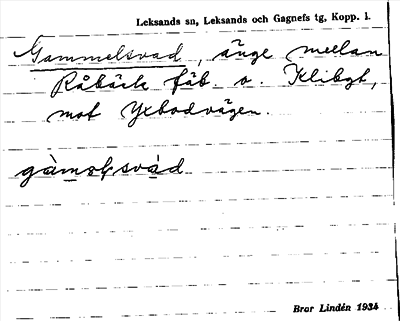 Leksands sn, Leksands och Gagnefs tg, Kopp. l.
Gammelsvad, änge mellan
Råbäck fäb o. Klibgt,
mot Yxbodvägen.
Bror Lindén 1934